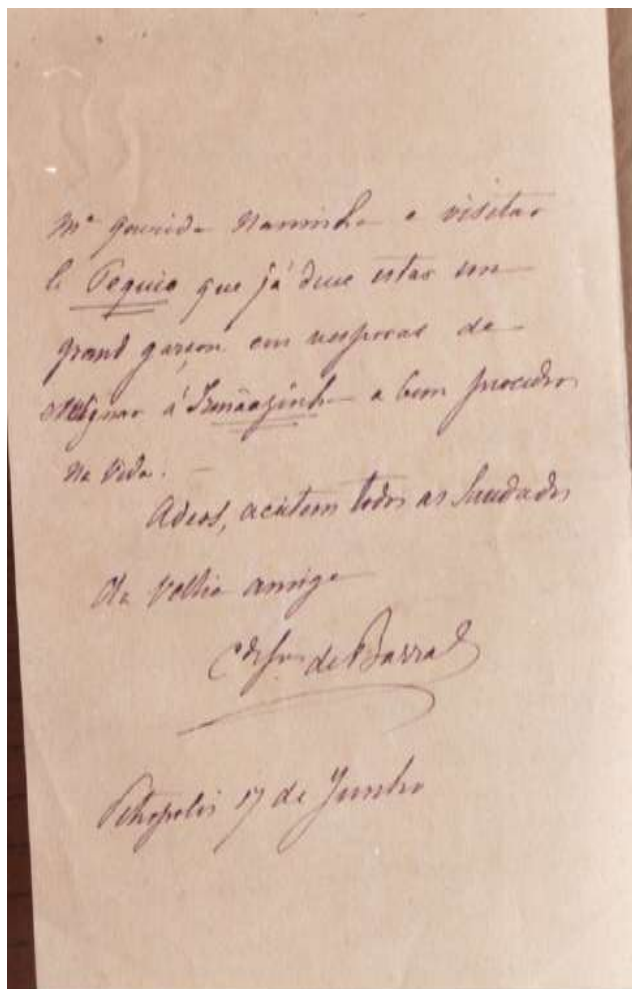 Mª querida Naninha e visitar
le Pequio que já deve estar um
grand garçon em vesporas de
á Irmãazinha a bem proceder
na vida. —
Adeos, aceitem todos as Saudades
da Velha amiga
Cdssa de Barral
Petropolis 17 de Junho